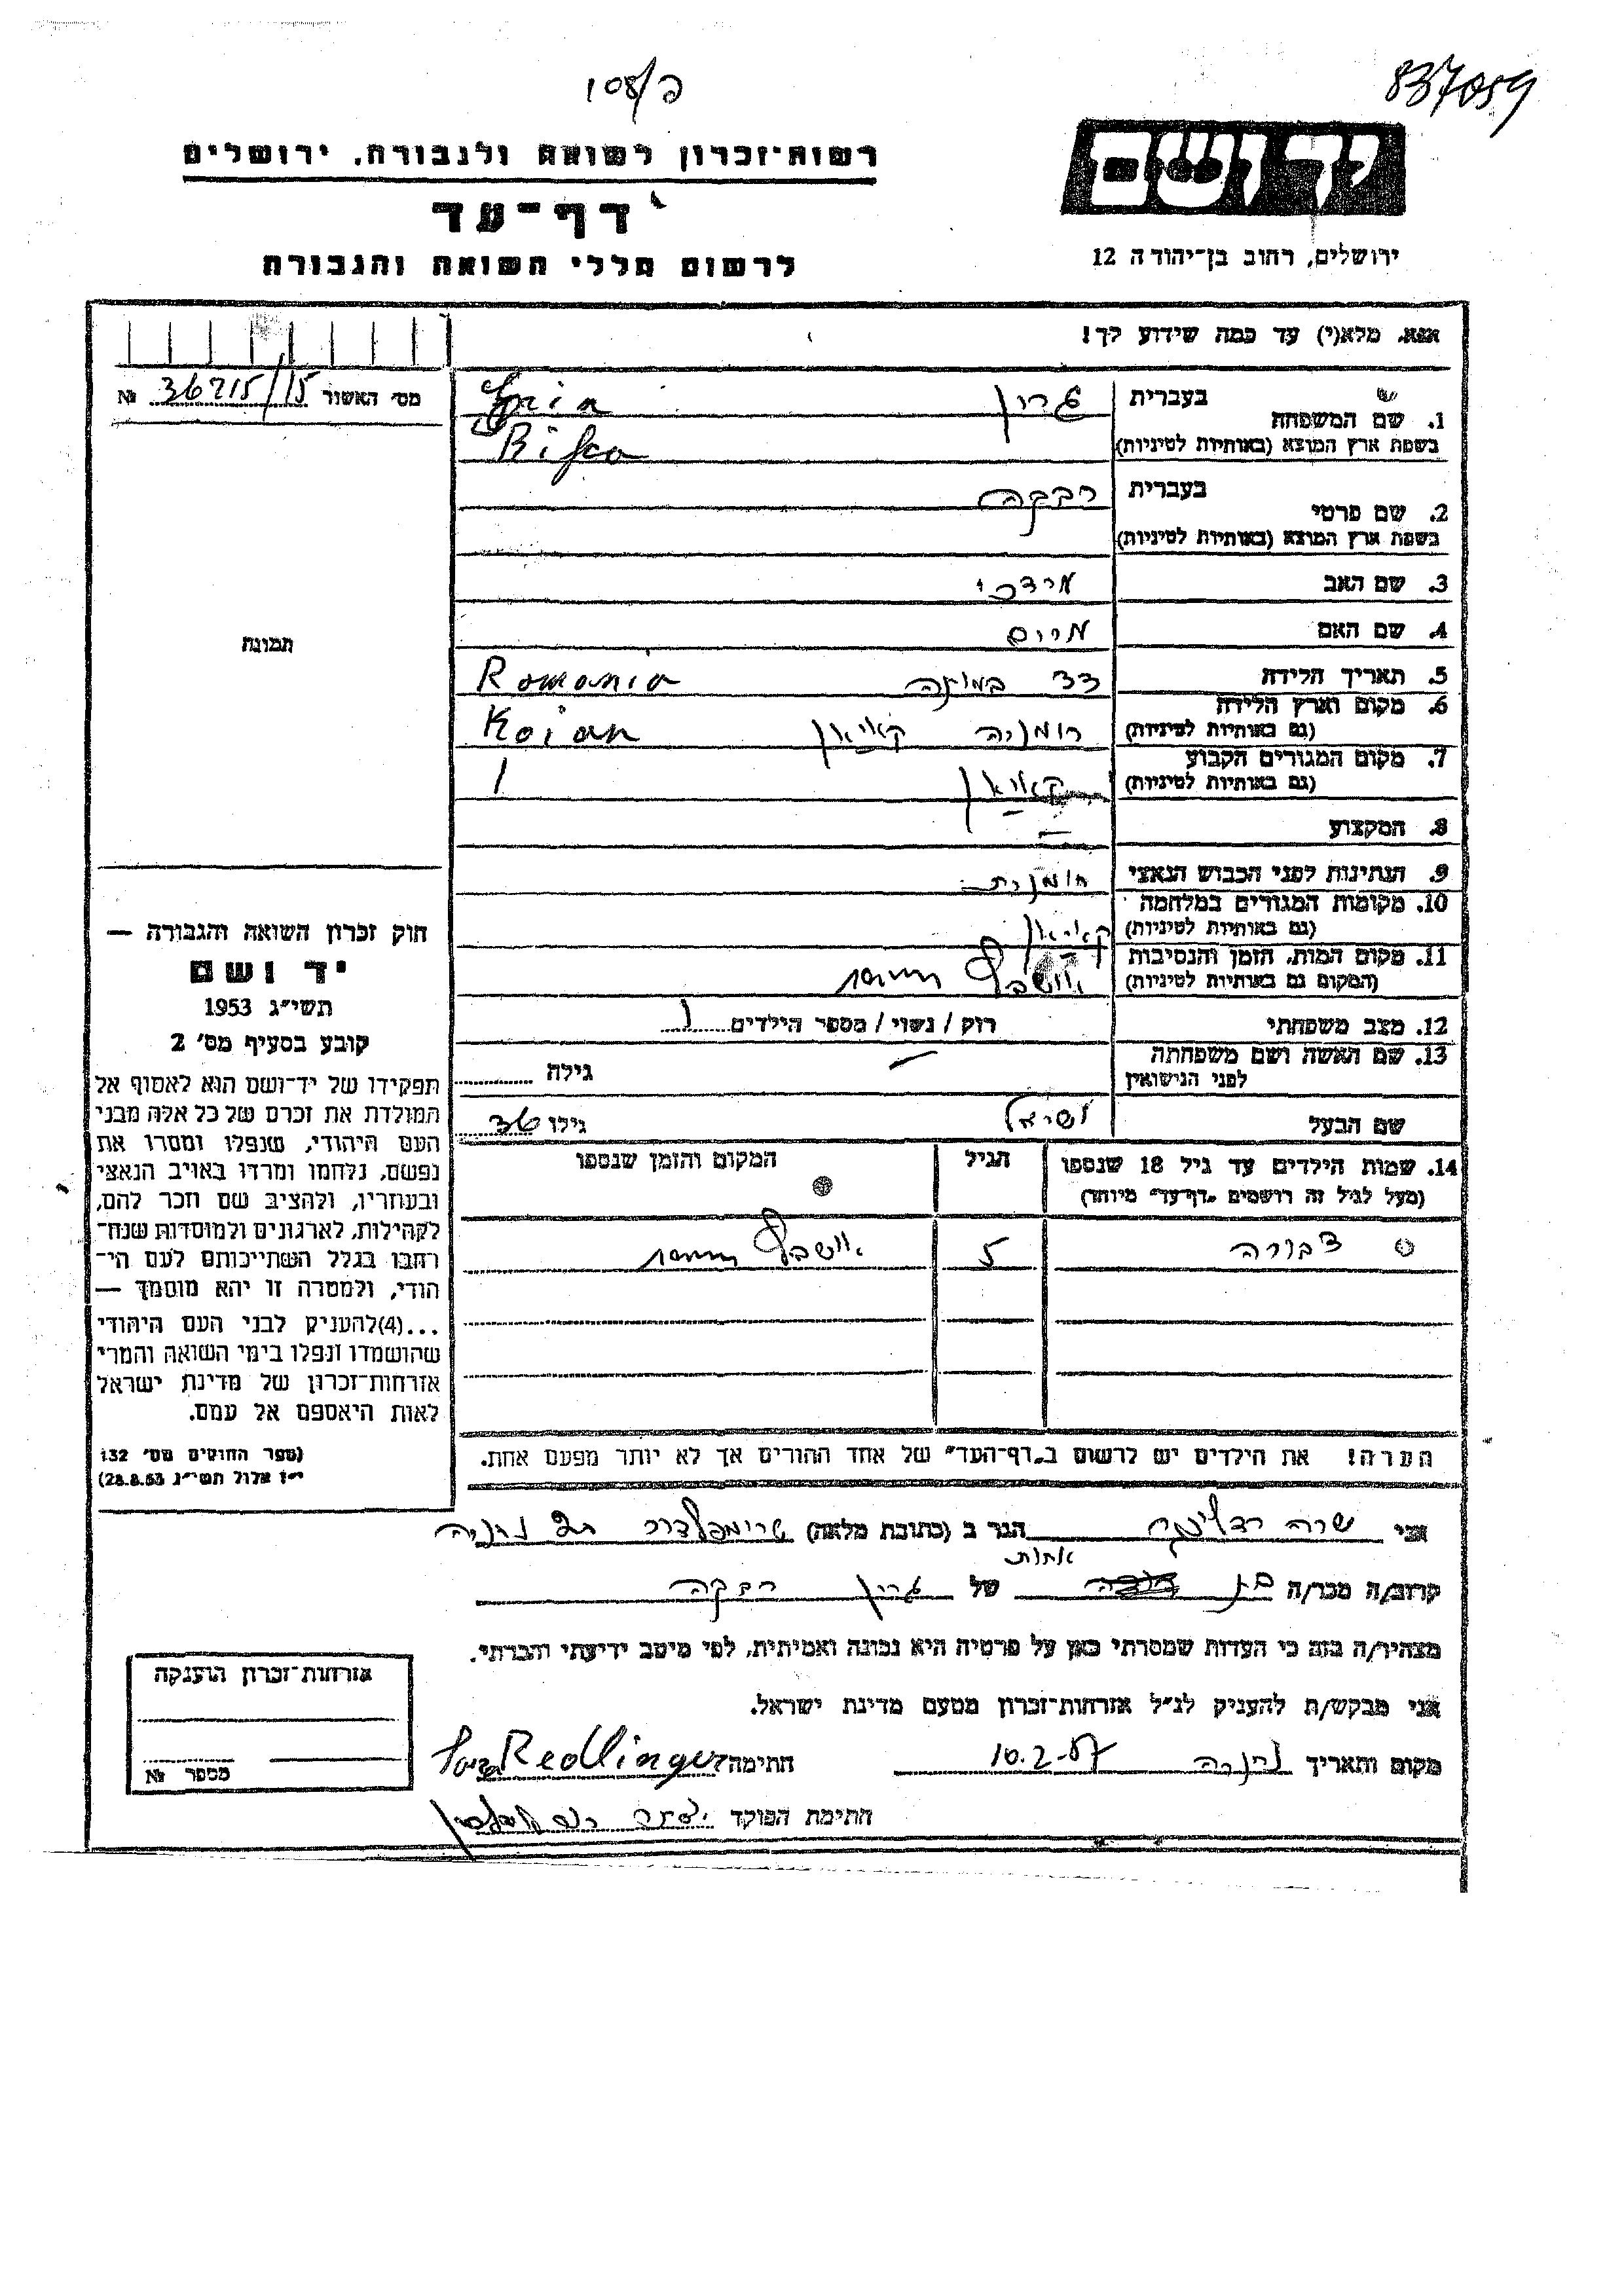 837059
108/פ
יד ושם
ירושלים, רחוב בן־יהודה 12
רשות־זכרון לשואה ולגבורה, ירושלים
דף־עד
לרשום חללי השואה והגבורה
אנא, מלא(י) עד כמה שידוע לך!
מס׳ האשור 36215/15 №
תמונה
1. שם המשפחה
בעברית גרין
בשפת ארץ המוצא (באותיות לטיניות)
Rifca
2. שם פרטי
בעברית רבקה
בשפת ארץ המוצא (באותיות לטיניות)
3. שם האב מרדכי
4. שם האם מרים
5. תאריך הלידה 33 Romania
6. מקום וארץ הלידה
(גם באותיות לטיניות) רומניה קאיאן Koian
7. מקום המגורים הקבוע
(גם באותיות לטיניות) קאיאן
8. המקצוע —
9. הנתינות לפני הכבוש הנאצי רומנית
10. מקומות המגורים במלחמה
(גם באותיות לטיניות) קאיאן
11. מקום המות, הזמן והנסיבות
(המקום גם באותיות לטיניות) אושבץ
12. מצב משפחתי רווק / נשוי / מספר הילדים 1
13. שם האשה ושם משפחתה
לפני הנישואין — גילה
שם הבעל ישראל גילו 36
14. שמות הילדים עד גיל 18 שנספו
(מעל לגיל זה רושמים „דף־עד” מיוחד)
הגיל
המקום והזמן שנספו
דבורה 5 אושבץ
הערה! את הילדים יש לרשום ב„דף־העד” של אחד ההורים אך לא יותר מפעם אחת.
חוק זכרון השואה והגבורה —
יד ושם
תשי״ג 1953
קובע בסעיף מס׳ 2
תפקידו של יד־ושם הוא לאסוף אל
המולדת את זכרם של כל אלה מבני
העם היהודי, שנפלו ומסרו את
נפשם, נלחמו ומרדו באויב הנאצי
ובעוזריו, ולהציב שם וזכר להם,
לקהילות, לארגונים ולמוסדות שנח־
רבו בגלל השתייכותם לעם הי־
הודי, ולמטרה זו יהא מוסמך —
...(4)להעניק לבני העם היהודי
שהושמדו ונפלו בימי השואה והמרי
אזרחות־זכרון של מדינת ישראל
לאות היאספם אל עמם.
(ספר החוקים מס׳ 132
י״ז אלול תשי״ג 28.8.53)
אני שרה רדלינגר הגר ב (כתובת מלאה) טרומפלדור נתניה
אחות
קרוב/ה מכר/ה של גרין רבקה
מצהיר/ה בזה כי העדות שמסרתי כאן על פרטיה היא נכונה ואמיתית, לפי מיטב ידיעתי והכרתי.
אני מבקש/ת להעניק לנ״ל אזרחות־זכרון מטעם מדינת ישראל.
מקום ותאריך נתניה 10.2.57 חתימה Sara Redlinger
חתימת הפוקד
אזרחות־זכרון הוענקה
מספר №